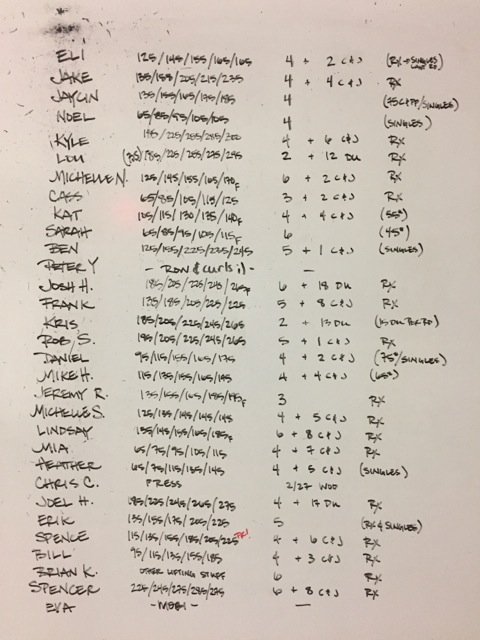 ELI 125/145/155/165/165 4 + 2 C&J (RX + SINGLES
JAKE 135/185/205/215/235 4 + 4 C&J RX
JAYLIN 135/155/165/175/185 4 (75 C&J PP/SINGLES)
NOEL 65/85/95/105/105 4 (SINGLES)
KYLE 195/225/255/285/300 4 + 6 C&J RX
LOU 185/225/255/275/295 2 + 12 DU RX
MICHELLE N. 125/145/155/165/170F 6 + 2 C&J RX
CASS 65/85/105/115/125 3 + 2 C&J RX
KAT 105/115/130/135/140F 4 + 4 C&J (55#)
SARAH 65/85/95/105/115F 6 (45#)
BEN 125/155/225/225/245 5 + 1 C&J (SINGLES)
PETER Y - ROW & CURLS :) - —
JOSH H. 185/205/225/245/265F 6 + 18 DU RX
FRANK 135/185/205/225/225 5 + 8 C&J RX
KRIS 185/205/225/245/265 2 + 13 DU (15 DU PER RD)
ROB S. 185/205/225/245/265 5 + 1 C&J RX
DANIEL 95/115/155/165/175 4 + 2 C&J (75#/SINGLES)
MIKE H. 115/135/155/165/185 4 + 4 C&J (65#)
JEREMY R. 135/155/165/185/195F 3 RX
MICHELLE S. 125/135/145/145/145 4 + 5 C&J RX
LINDSAY 135/145/155/165/185F 6 + 8 C&J RX
MIA 65/75/95/105/115 4 + 7 C&J RX
HEATHER 65/75/115/135/145 4 + 5 C&J (SINGLES)
CHRIS C. PRESS 2/27 WOD
JOEL H. 185/225/245/265/275 4 + 17 DU RX
ERIK 135/155/175/205/225 5 (RX & SINGLES)
SPENCE 115/135/155/185/205/225 PR! 4 + 6 C&J RX
BILL 95/115/135/155/185 4 + 3 C&J RX
BRIAN K. OTHER LIFTING STUFF 6 RX
SPENCER 225/245/275/285/295 6 + 8 C&J RX
EVA —